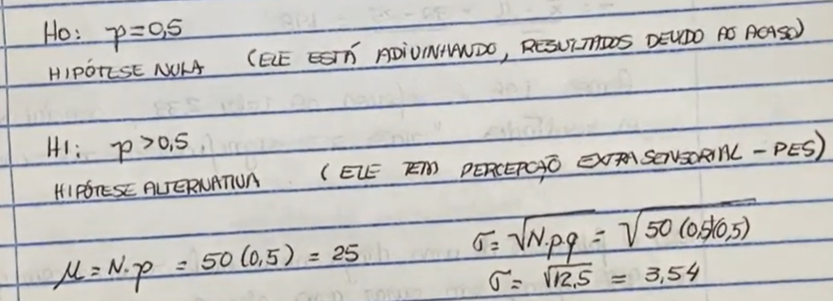 H0: p=0,5
HIPÓTESE NULA (ELE ESTÁ ADIVINHANDO, RESULTADOS DEVIDO AO ACASO)
H1: p>0,5
HIPÓTESE ALTERNATIVA (ELE TEM PERCEPÇÃO EXTRASENSORIAL - PES)
μ = N.p = 50 (0,5) = 25
σ = √N.p.q = √50 (0,5)(0,5)
σ = √12,5 = 3,54